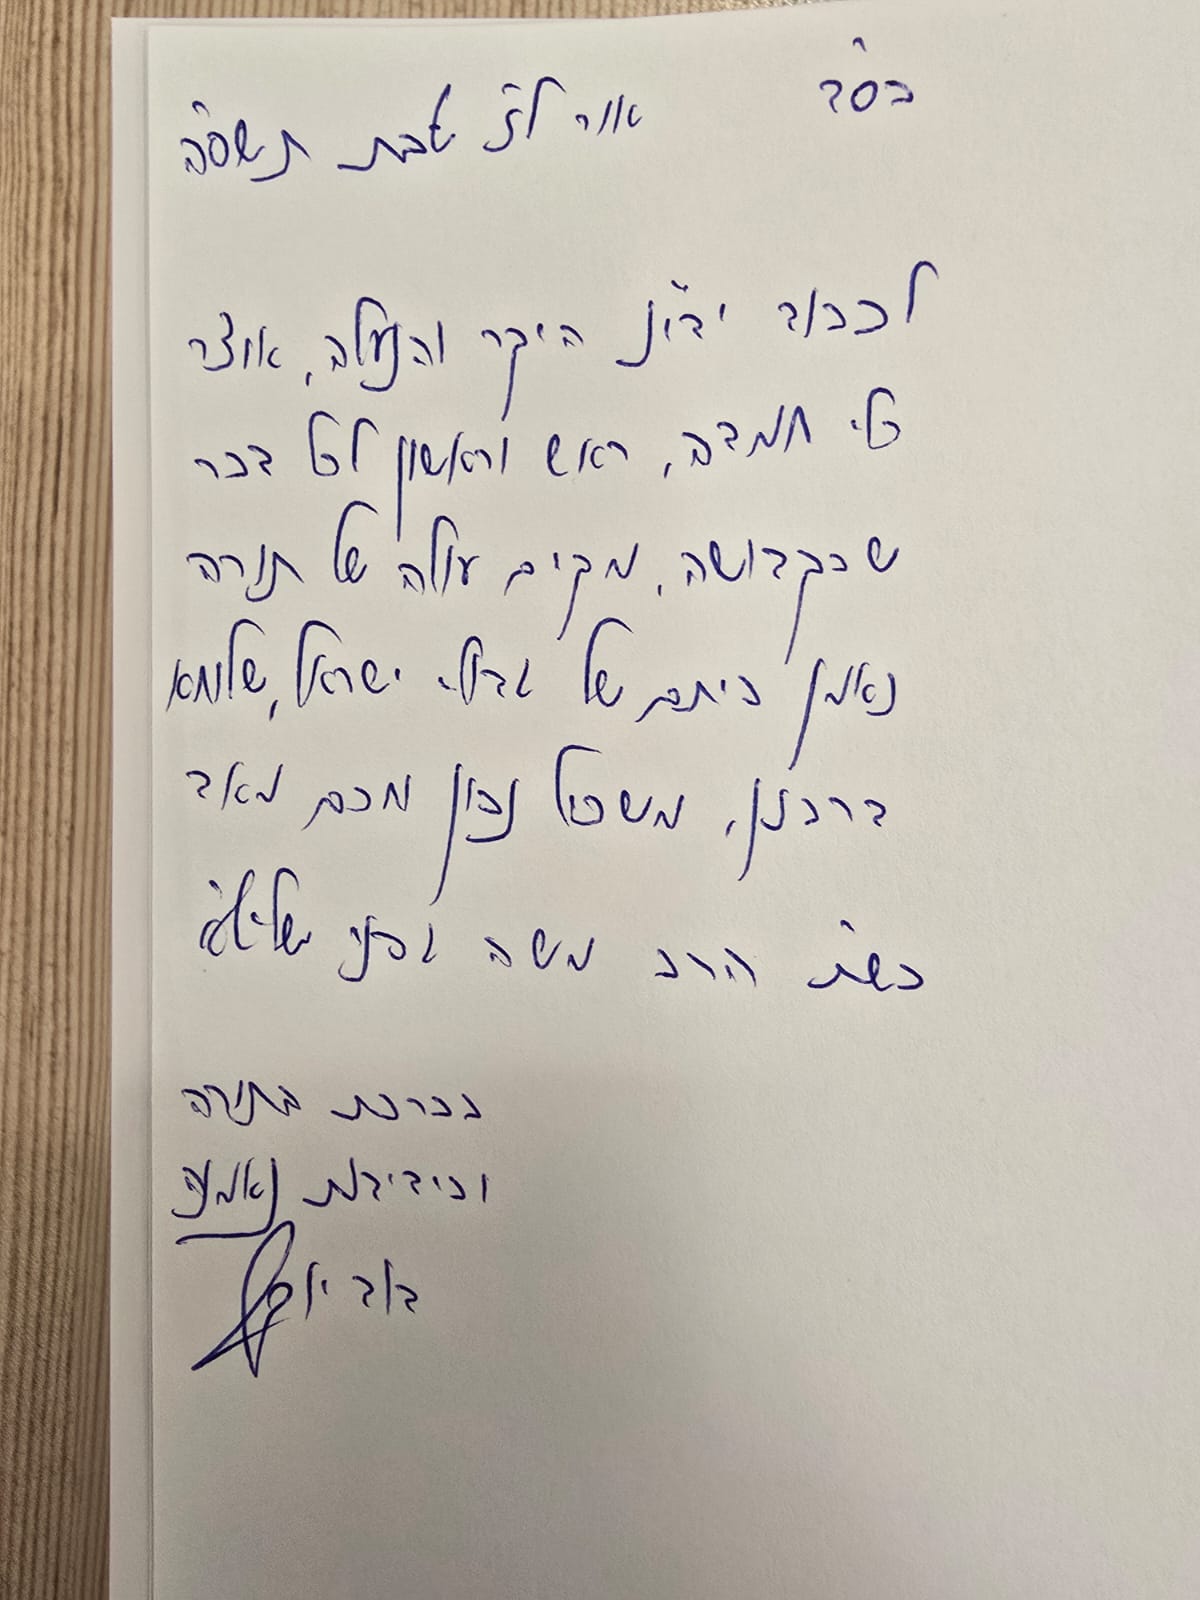 בס"ד
אור לז' טבת תשפ"ה
לכבוד ידי"נ היקר והנעלה, אוצר
כלי חמדה, ראש וראשון לכל דבר
שבקדושה, מקים עולה של תורה
נאמן ביתם של גדולי ישראל, שלוחא
דרבנן, משכיל נבון וחכם מאד
כש"ת הרב משה גפני שליט"א
בברכת התורה
ובידידות נאמנה
דוד יוסף